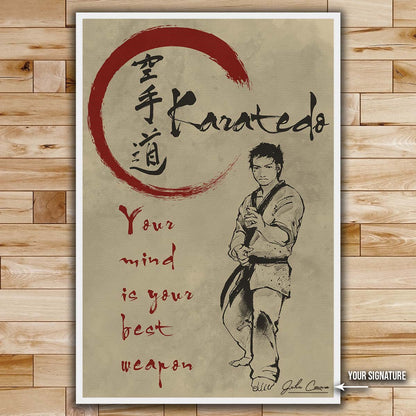 空手道
Karatedo
Your
mind
is your
best
weapon
YOUR SIGNATURE